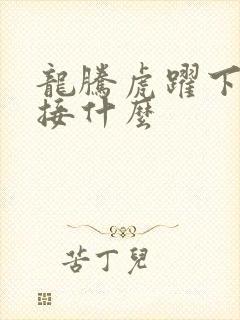 龍騰虎躍下
接什麼
苦丁兒